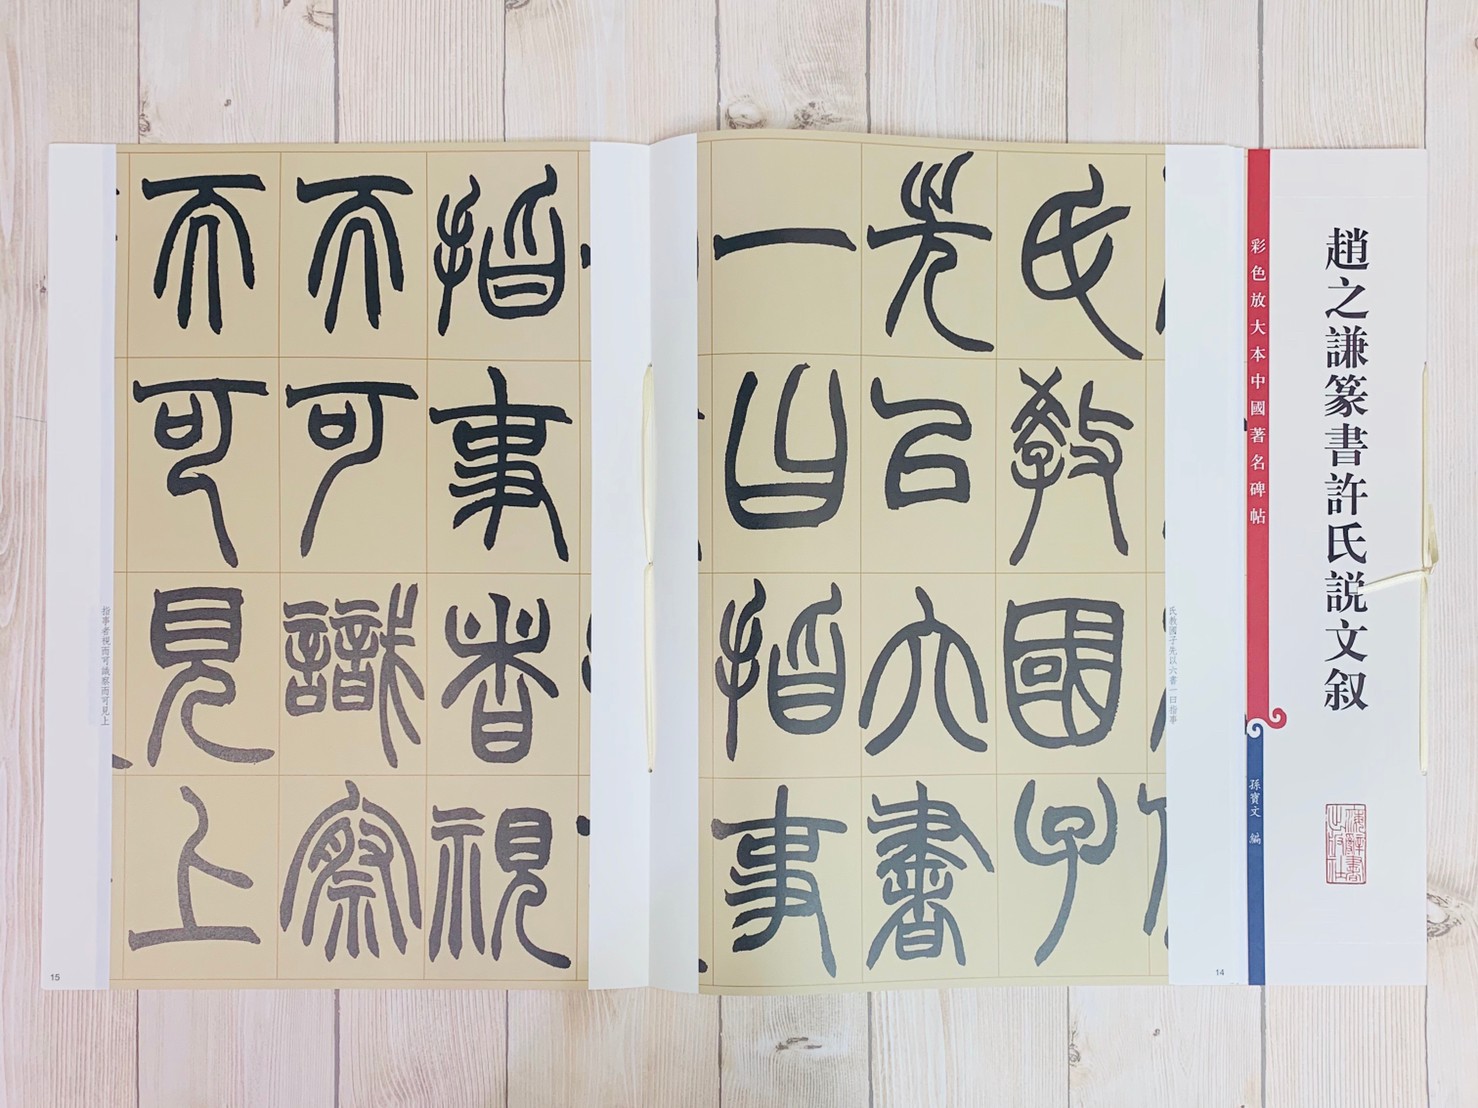 趙之謙篆書許氏説文叙
彩色放大本中國著名碑帖
孫寶文 編
氏教國子
先以六書
一曰指事
氏教國子先以六書一曰指事
14
指事者視
而可識察
而可見上
指事者視而可識察而可見上
15